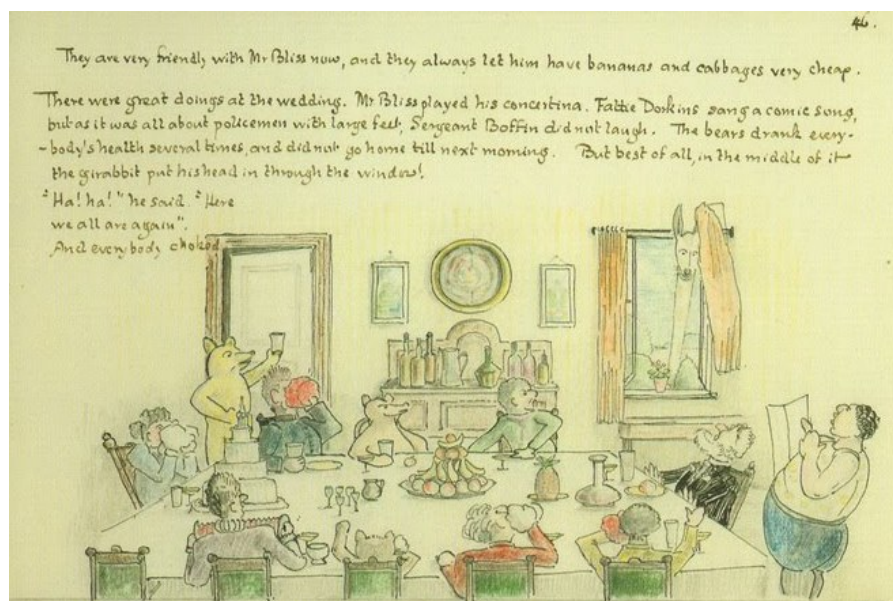 46.
They are very friendly with Mr Bliss now, and they always let him have bananas and cabbages very cheap.
There were great doings at the wedding. Mr Bliss played his concertina. Fattie Dorkins sang a comic song,
but as it was all about policemen with large feet, Sergeant Boffin did not laugh. The bears drank every-
-body's health several times, and did not go home till next morning. But best of all, in the middle of it
the girabbit put his head in through the window!
"Ha! ha!" he said. "Here
we all are again".
And everybody choked